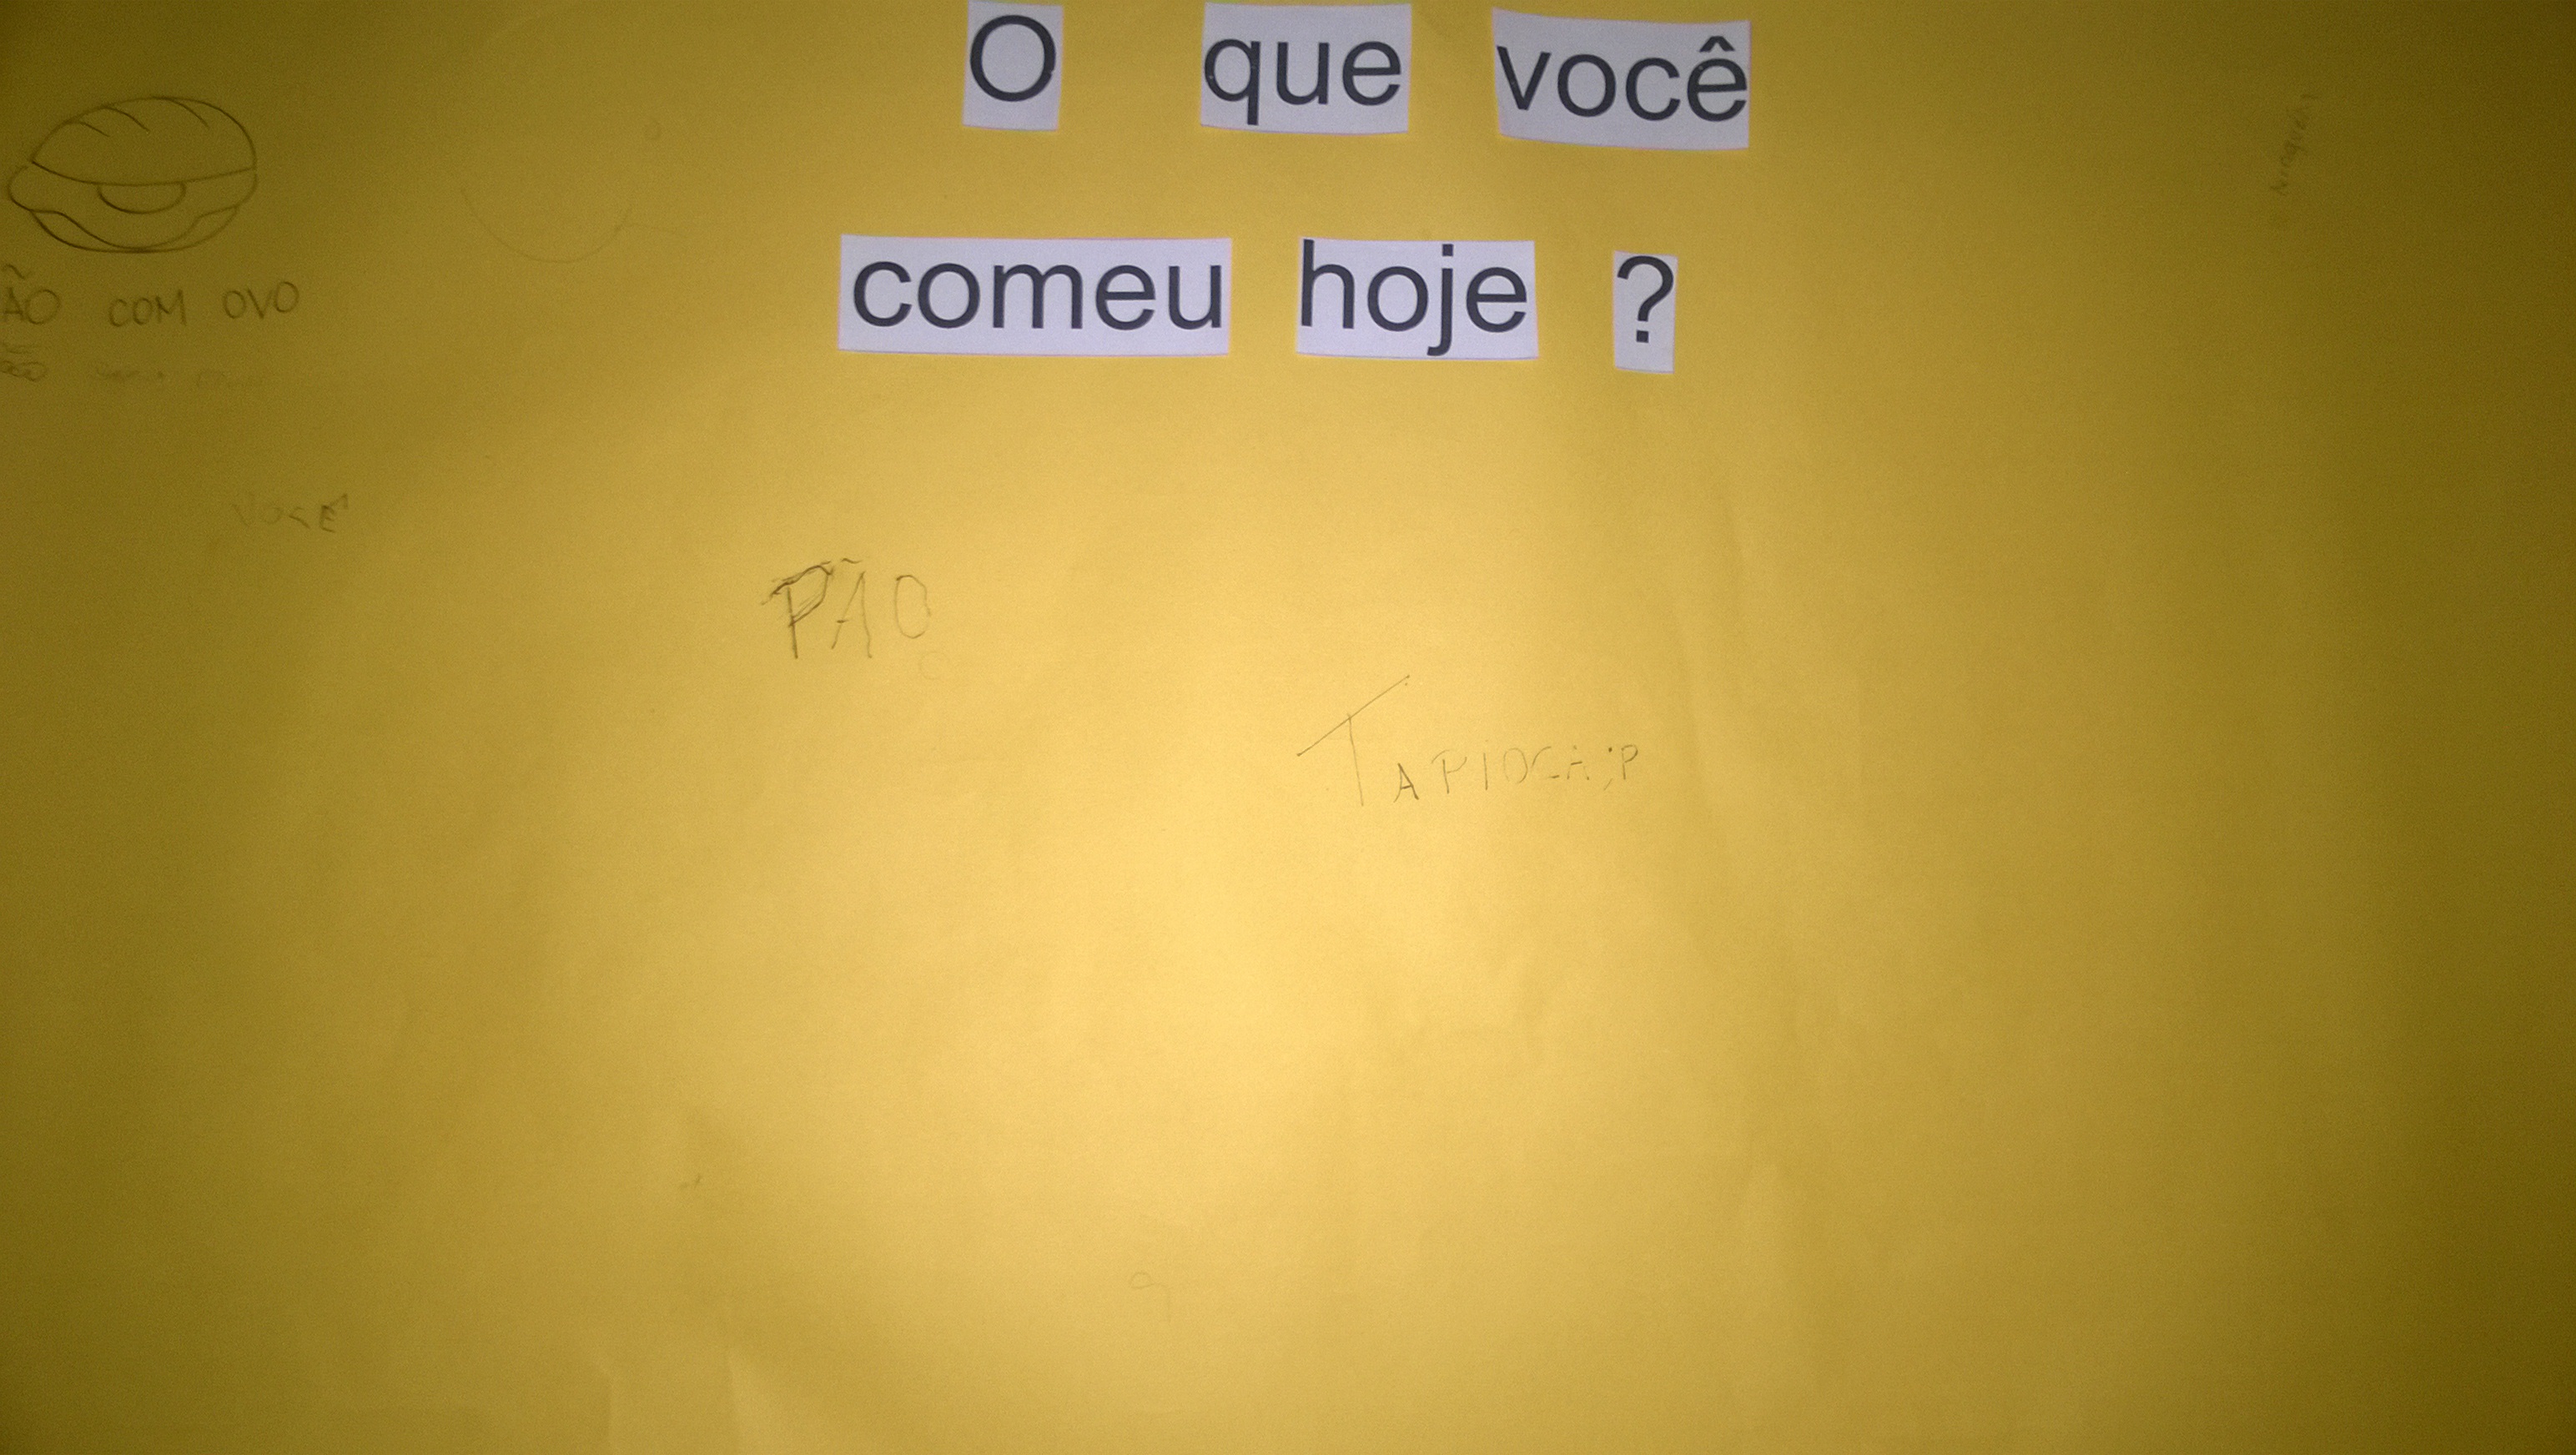 O que você
comeu hoje ?
ÃO COM OVO
VOCÊ
PÃO
TAPIOCA ;P